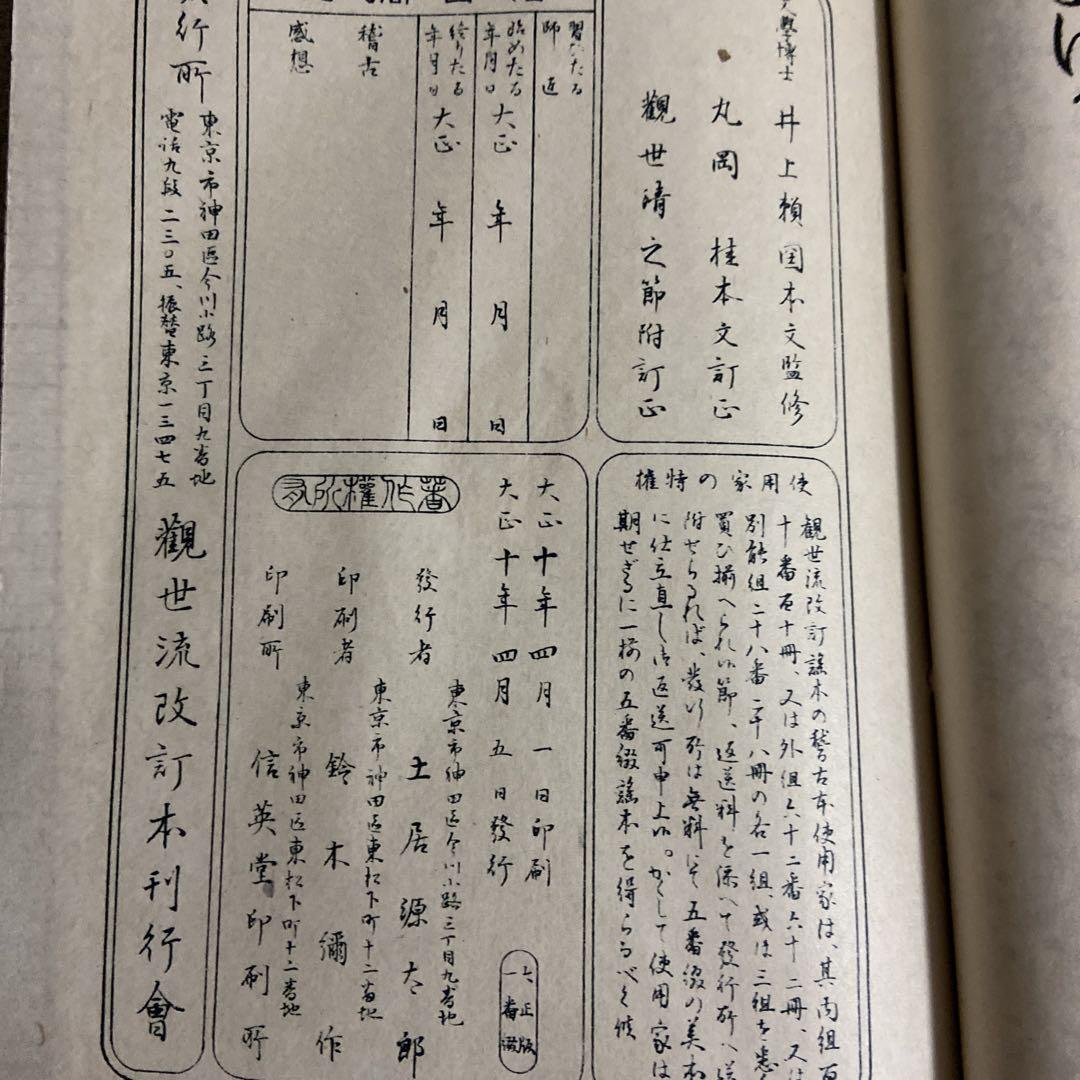 文學博士 井上頼圀本文監修
丸岡 桂本文訂正
觀世清之節附訂正
使用家の特權
觀世流改訂謠本の稽古本使用家は、其内組百
十番百十冊、又は外組六十二番六十二冊、又は
別能組二十八番二十八冊の各一組、或は三組を悉く
買ひ揃へられ候節、返送料を添へて發行所へ送
附せらるれば、發行所は無料にて五番綴の美本
に仕立直し御返送可申上候。かくして使用家は
期せずに一揃の五番綴謠本を得らるべく候
習ひたる師匠
始めたる年月日 大正 年 月 日
終りたる年月日 大正 年 月 日
稽古
感想
大正十年四月一日印刷
大正十年四月五日發行
大正版
一番綴
著作權所有
發行者 東京市神田區今川小路三丁目九番地
土居源太郎
印刷者 東京市神田區東松下町十二番地
鈴木彌作
印刷所 東京市神田區東松下町十二番地
信英堂印刷所
發行所 東京市神田區今川小路三丁目九番地
電話九段二三〇五、振替東京一三四七五
觀世流改訂本刊行會